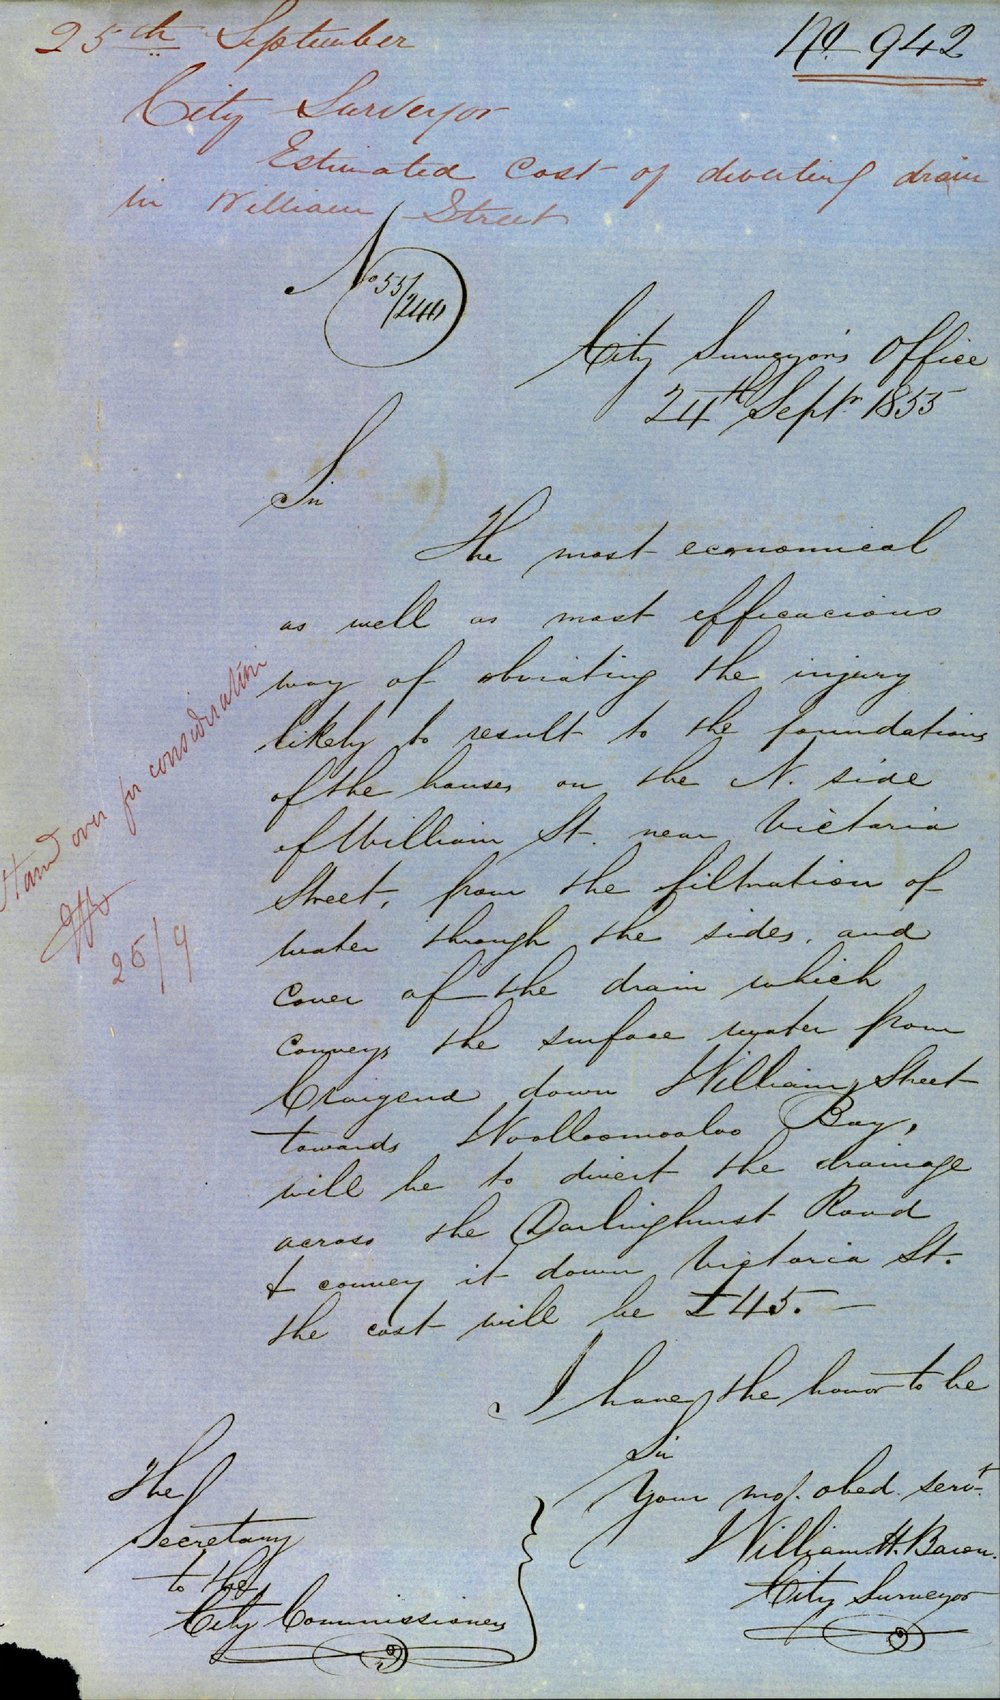 25th September
No. 942
City Surveyor
Estimated Cost of diverting drain
in William Street
No 55/244
City Surveyor's Office
24th Septr. 1855
Sir
The most economical
as well as most efficacious
way of obviating the injury
likely to result to the foundations
of the houses on the N. side
of William St. near Victoria
Street, from the filtration of
water through the sides, and
cover of the drain which
conveys the surface water from
Craigend down William Street
towards Woolloomooloo Bay,
will be to divert the drainage
across the Darlinghurst Road
& convey it down Victoria St.
the cost will be £45. —
I have the honor to be
Sir
Your mos. obed. servt.
William. H. Baron.
City Surveyor
The
Secretary
to the
City Commissioners
Stand over for consideration
25/9